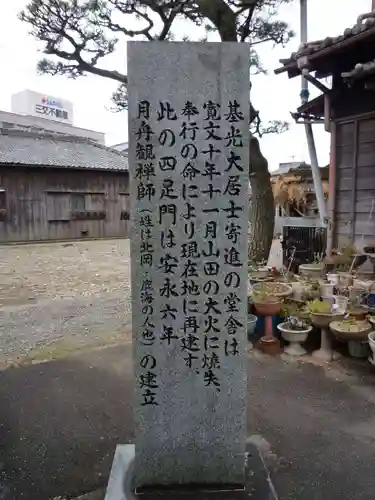 基光大居士寄進の堂舎は
寛文十年十一月山田の大火に焼失、
奉行の命により現在地に再建す。
此の四足門は安永六年
月舟観禅師(姓は北岡・鹿海の人也)の建立
三交不動産